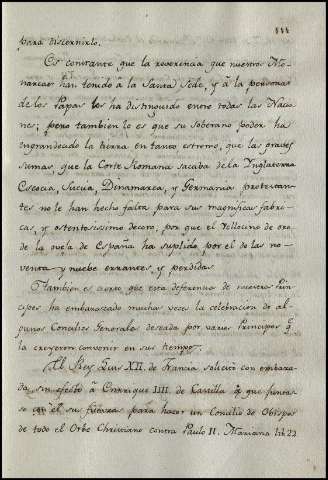 111
para discernirlo.
Es constante que la reverencia que nuestros Mo-
narcas han tenido â la Santa Sede, y â la persona
de los Papas los ha distinguido entre todas las Nacio
nes; pero tambien lo es que su soberano poder ha
engrandecido la tiara en tanto estremo, que las gruesas
sumas, que la Corte Romana sacaba de la Inglaterra
Escocia, Suecia, Dinamarca, y Germania protestan-
tes no le han hecho falta para sus magnificas fabri-
cas, y ostentosissimo decoro, por que el Vellocino de oro
de la oveja de España ha suplido por el de las no-
venta y nuebe errantes y perdidas
Tambien es cierto que esta deferencia de nuestros Prin
cipes ha embarazado muchas veces la celebracion de al-
gunos Concilios Generales deseada por varios Principes q.
la creyeron convenir en sus tiempos.
El Rey Luis XII. de Francia solicitó con embaxa
da sin efecto â Enrrique IIII. de Castilla q. que juntas-
se con el sus fuerzas para hacer un Concilio de Obispos
de todo el Orbe Christiano contra Paulo II. Mariana lib 22